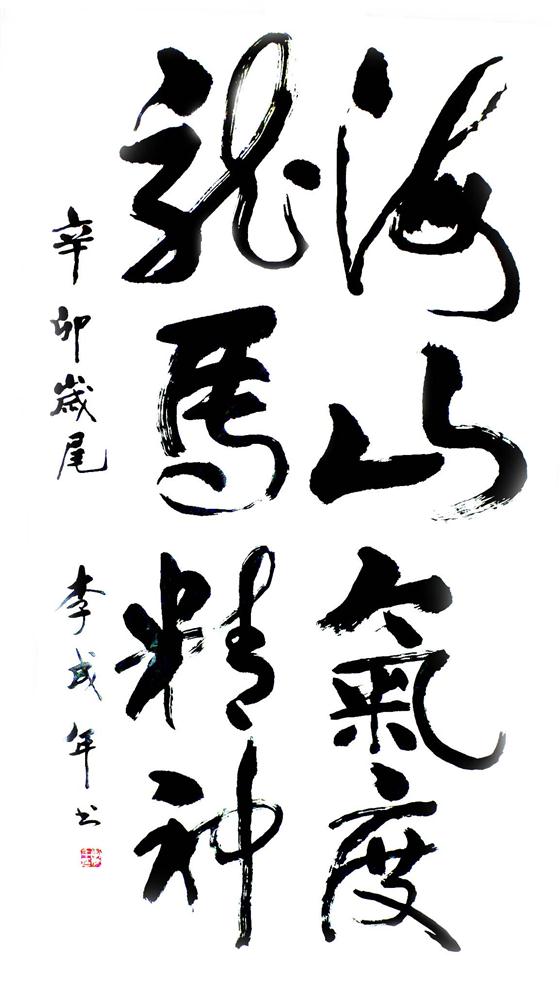 海山氣度
龍馬精神
辛卯歲尾
李成年书